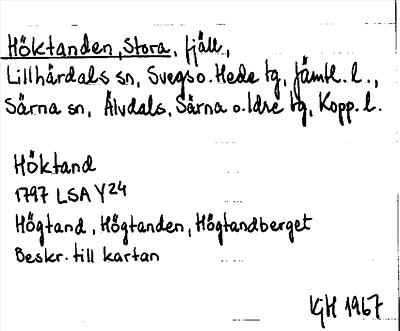 Höktanden, Stora, fjäll,
Lillhärdals sn, Svegs o. Hede tg, Jämtl. l.,
Särna sn, Älvdals, Särna o. Idre tg, Kopp. l.
Höktand
1797 LSA Y24
Högtand, Högtanden, Högtandberget
Beskr. till kartan
KjH 1967